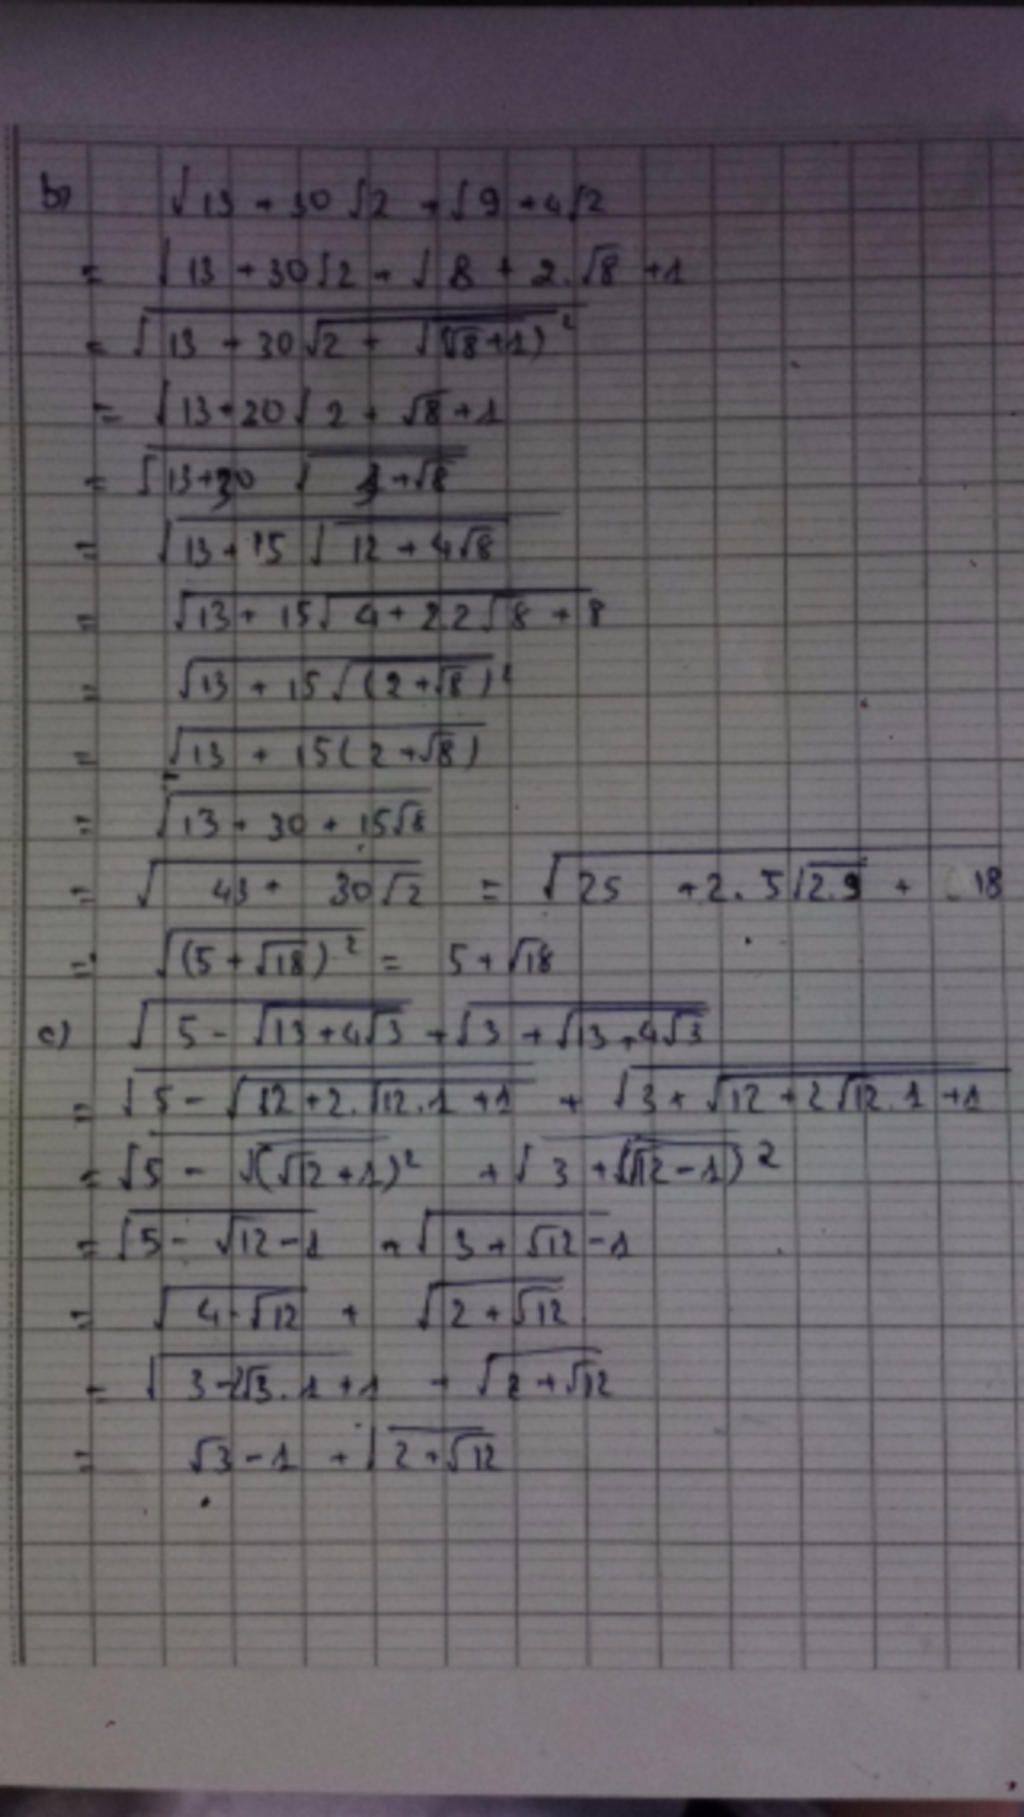 b) √13 + 30√2 + √9 + 4√2
= √13 + 30√2 + √8 + 2.√8 + 1
= √13 + 30√2 + √(√8+1)²
= √13+30√2 + √8 + 1
= √13+30 √3 + √8
= √13 + 15 √12 + 4√8
= √13 + 15√4 + 2.2√8 + 8
= √13 + 15√(2+√8)²
= √13 + 15(2+√8)
= √13 + 30 + 15√8
= √43 + 30√2 = √25 + 2.5√2.9 + 18
= √(5+√18)² = 5+√18
c) √5 - √13+4√3 + √3 + √13+4√3
= √5 - √12+2.√12.1+1 + √3 + √12+2√12.1+1
= √5 - √(√12+1)² + √3 + √(√12-1)²
= √5 - √12-1 + √3 + √12-1
= √4-√12 + √2+√12
= √3-2√3.1+1 + √2+√12
= √3-1 + √2+√12